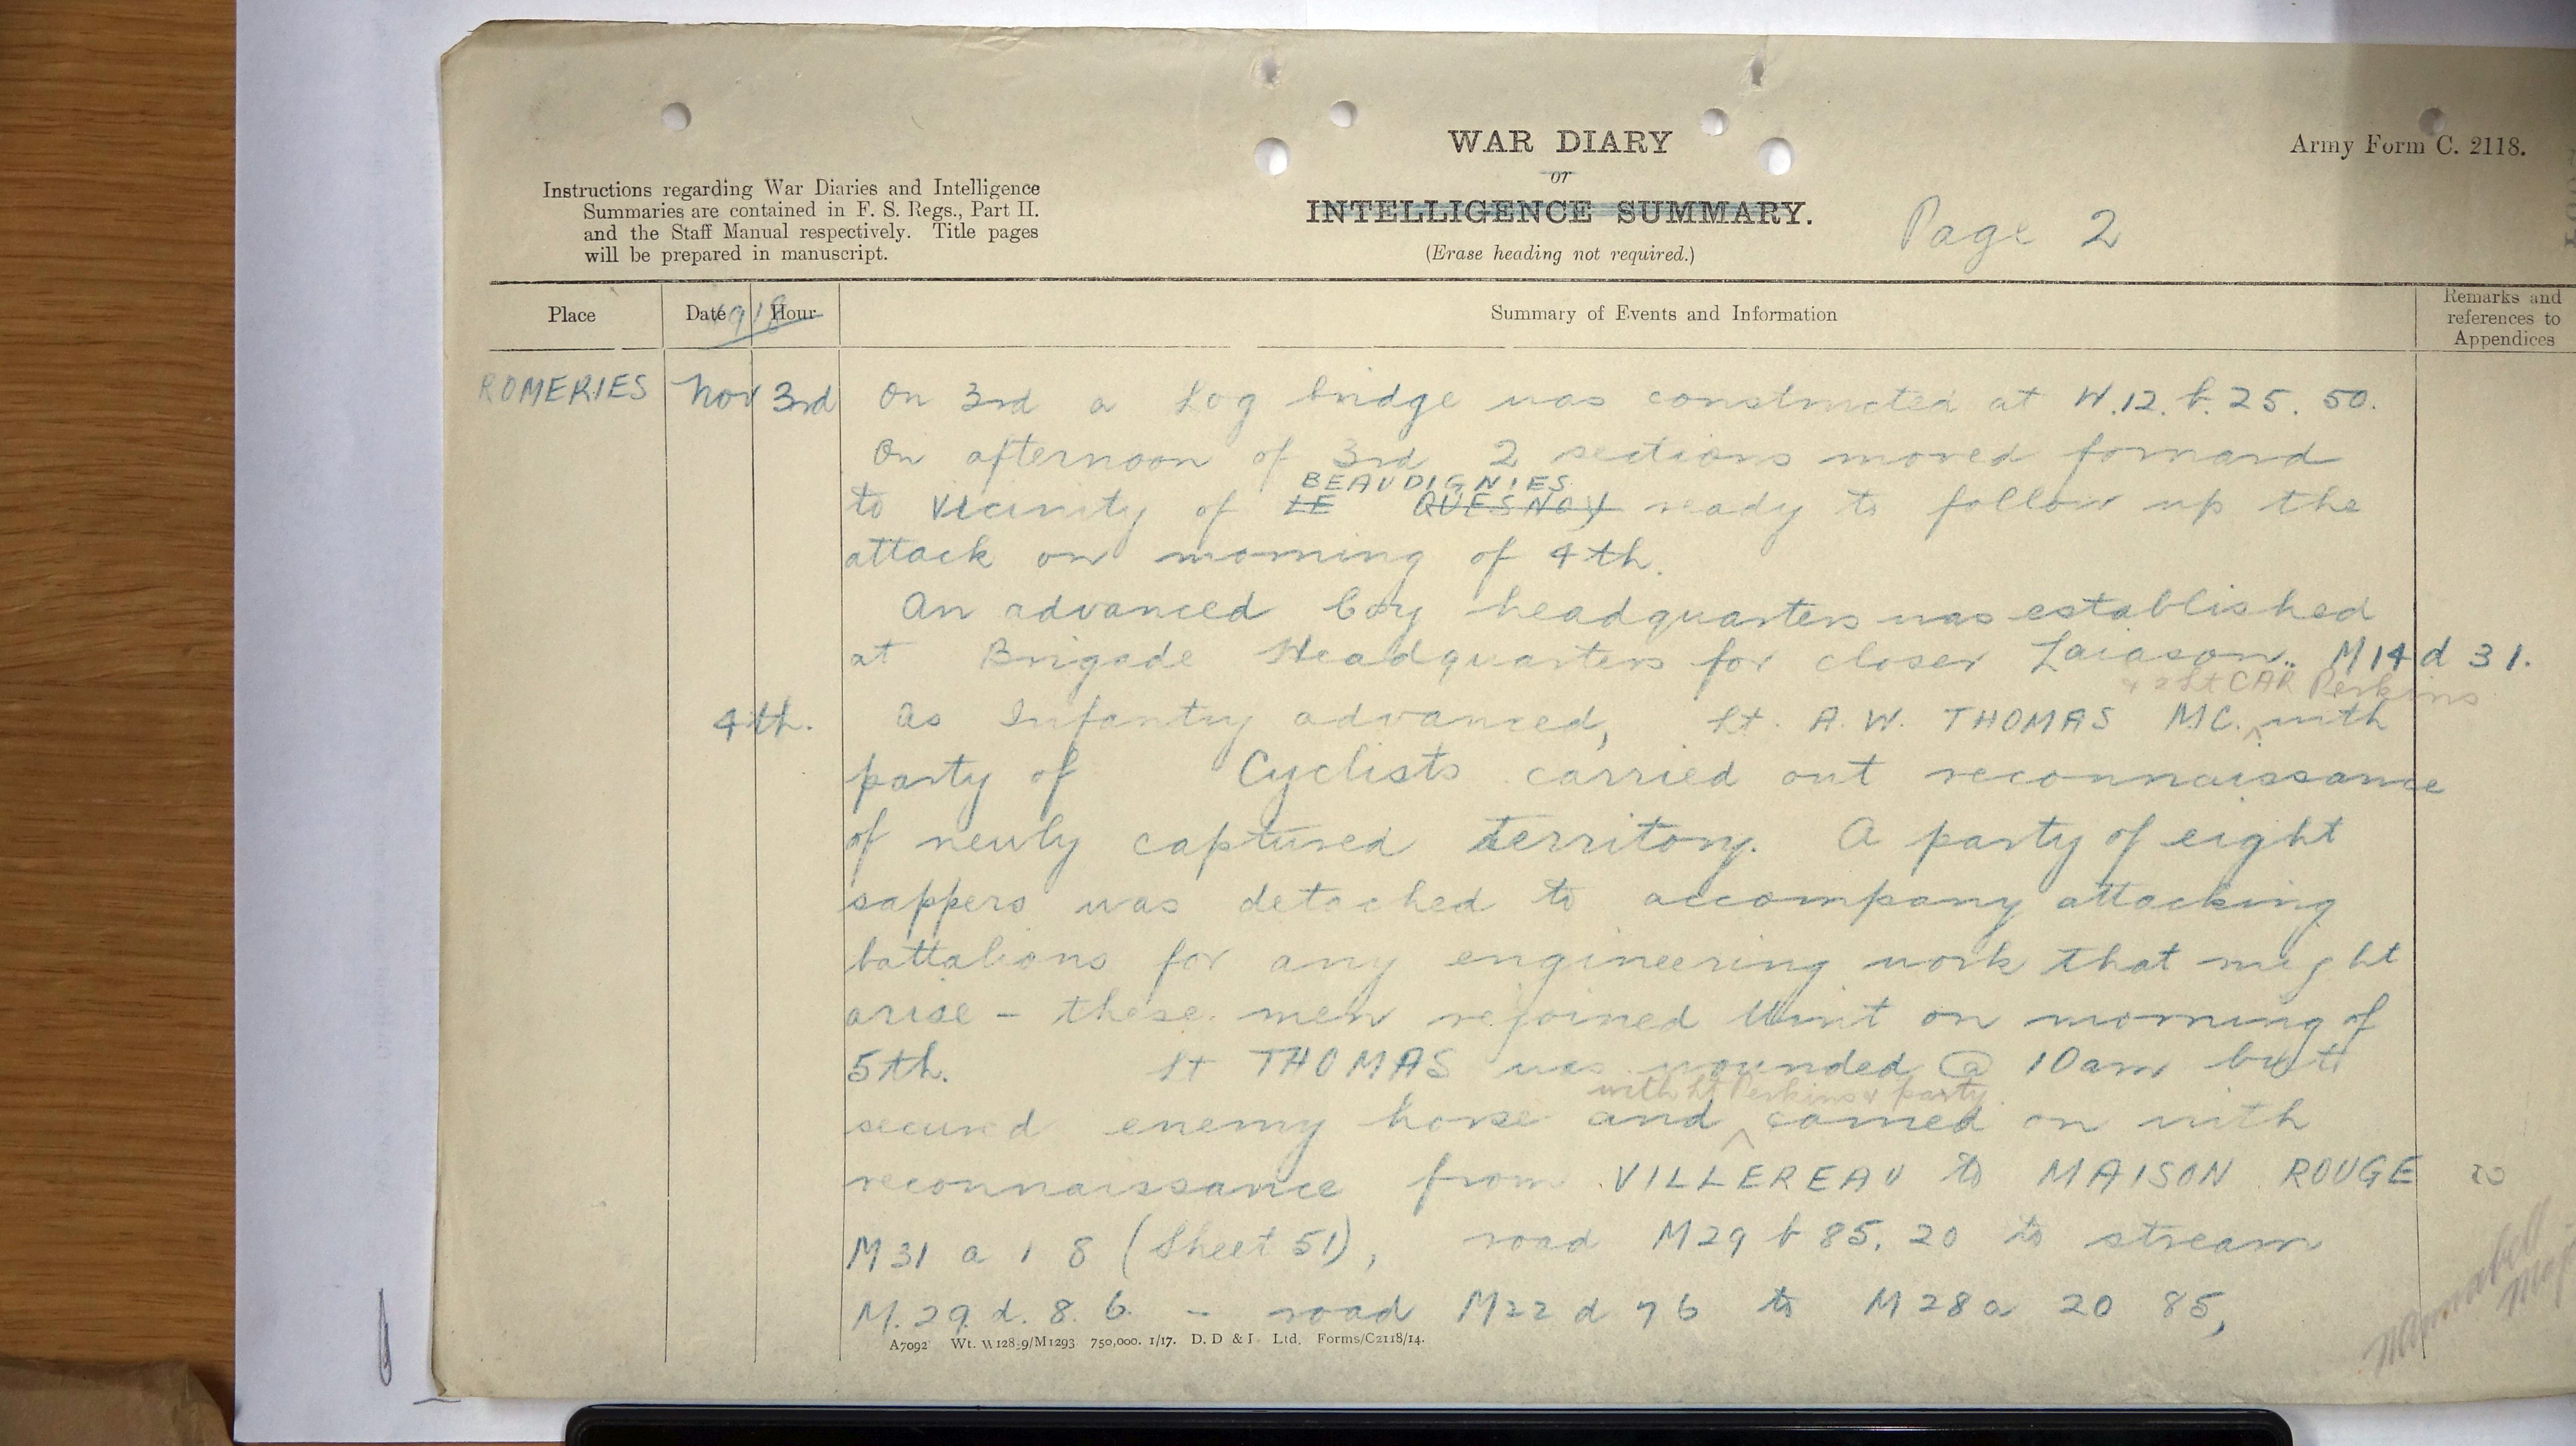 WAR DIARY
or
INTELLIGENCE SUMMARY.
(Erase heading not required.)
Army Form C. 2118.
Instructions regarding War Diaries and Intelligence
Summaries are contained in F. S. Regs., Part II.
and the Staff Manual respectively. Title pages
will be prepared in manuscript.
Page 2
Place
Date
Hour
1918
Summary of Events and Information
Remarks and
references to
Appendices
ROMERIES Nov 3rd On 3rd a Log bridge was constructed at W.12.b.25.50.
On afternoon of 3rd 2 sections moved forward
BEAUDIGNIES
to vicinity of LE QUESNOY ready to follow up the
attack on morning of 4th.
An advanced Coy headquarters was established
at Brigade Headquarters for closer Laiason. M14 d 31.
+ 2 Lt CAR Perkins
4th. As Infantry advanced, Lt. A. W. THOMAS M.C. with
party of Cyclists carried out reconnaissance
of newly captured territory. A party of eight
sappers was detached to accompany attacking
battalions for any engineering work that might
arise - these men rejoined Unit on morning of
5th. Lt THOMAS was wounded @ 10am but
with Lt Perkins & party
secured enemy horse and carried on with
reconnaissance from VILLEREAU to MAISON ROUGE
M31 a 1 8 (Sheet 51), road M29 b 85.20 to stream
M.29.d.8.6. - road M22 d 7 6 to M28a 20 85,
A7092 Wt. W128.9/M1293 750,000. 1/17. D. D & L Ltd. Forms/C2118/14.